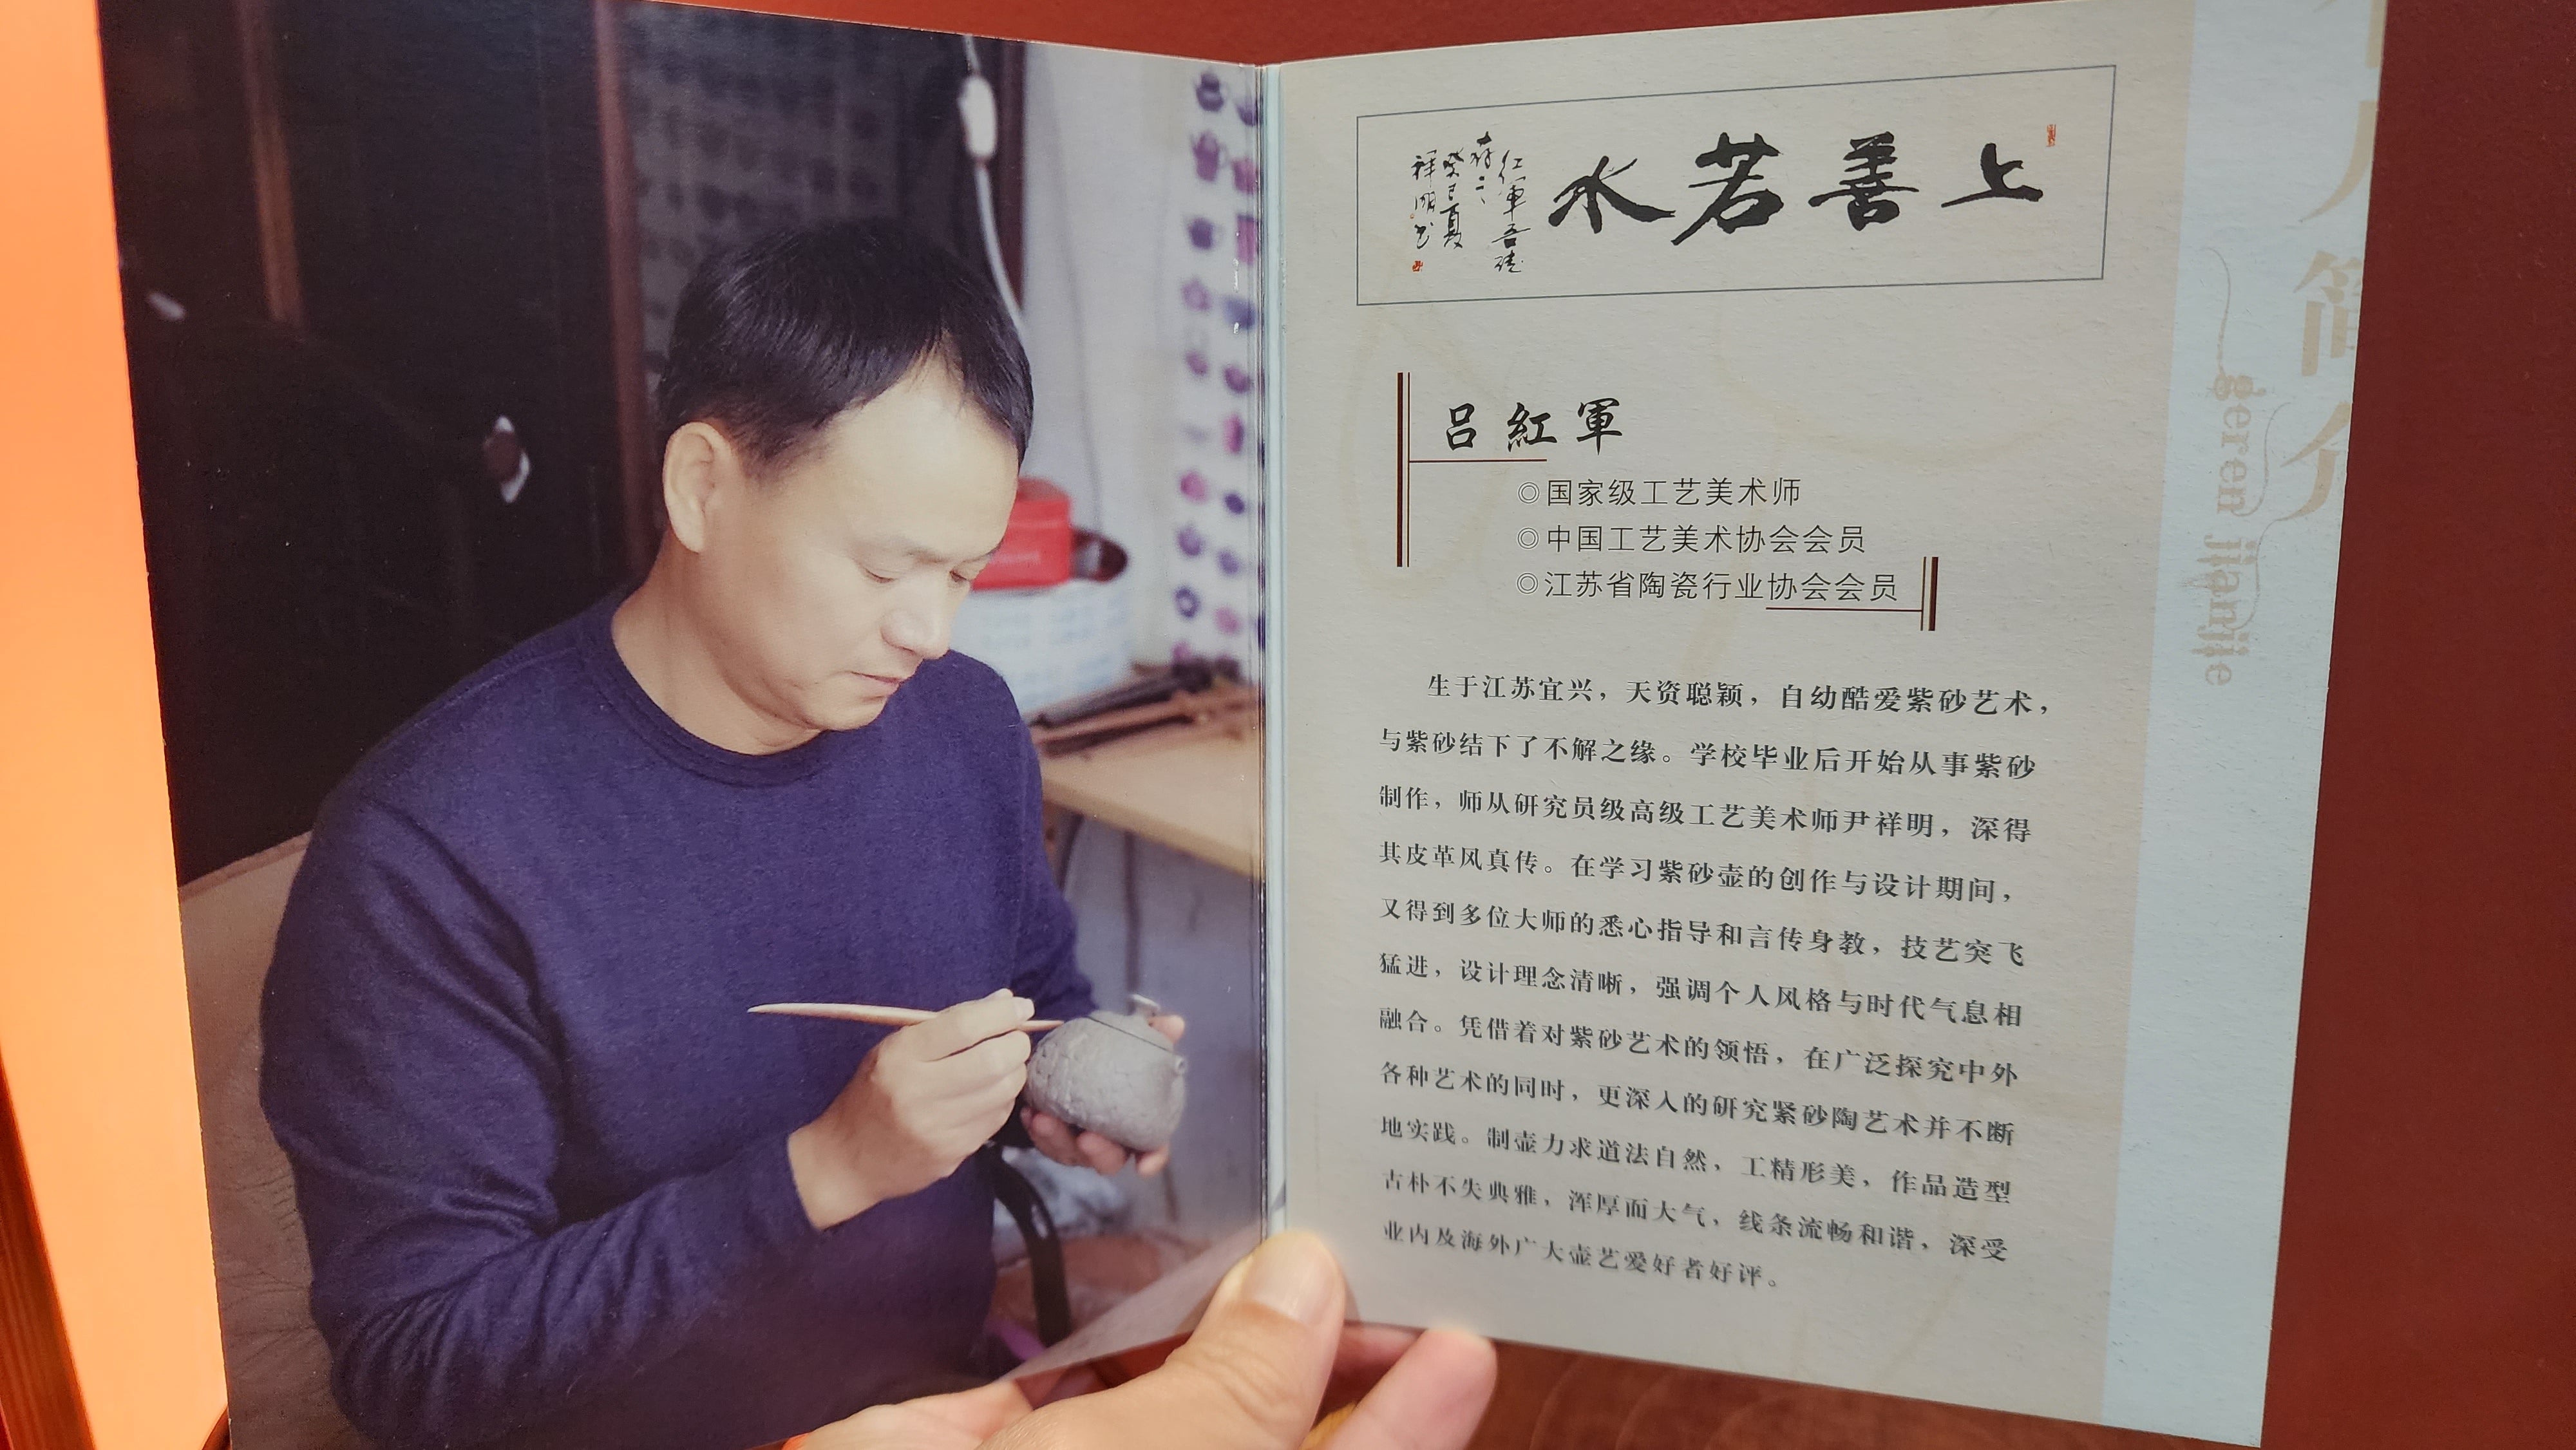 上善若水
仁軍吾徒
存之
癸巳夏
祥明书
吕紅軍
◎国家级工艺美术师
◎中国工艺美术协会会员
◎江苏省陶瓷行业协会会员
生于江苏宜兴，天资聪颖，自幼酷爱紫砂艺术，
与紫砂结下了不解之缘。学校毕业后开始从事紫砂
制作，师从研究员级高级工艺美术师尹祥明，深得
其皮革风真传。在学习紫砂壶的创作与设计期间，
又得到多位大师的悉心指导和言传身教，技艺突飞
猛进，设计理念清晰，强调个人风格与时代气息相
融合。凭借着对紫砂艺术的领悟，在广泛探究中外
各种艺术的同时，更深入的研究紧砂陶艺术并不断
地实践。制壶力求道法自然，工精形美，作品造型
古朴不失典雅，浑厚而大气，线条流畅和谐，深受
业内及海外广大壶艺爱好者好评。
简介
geren jianjie